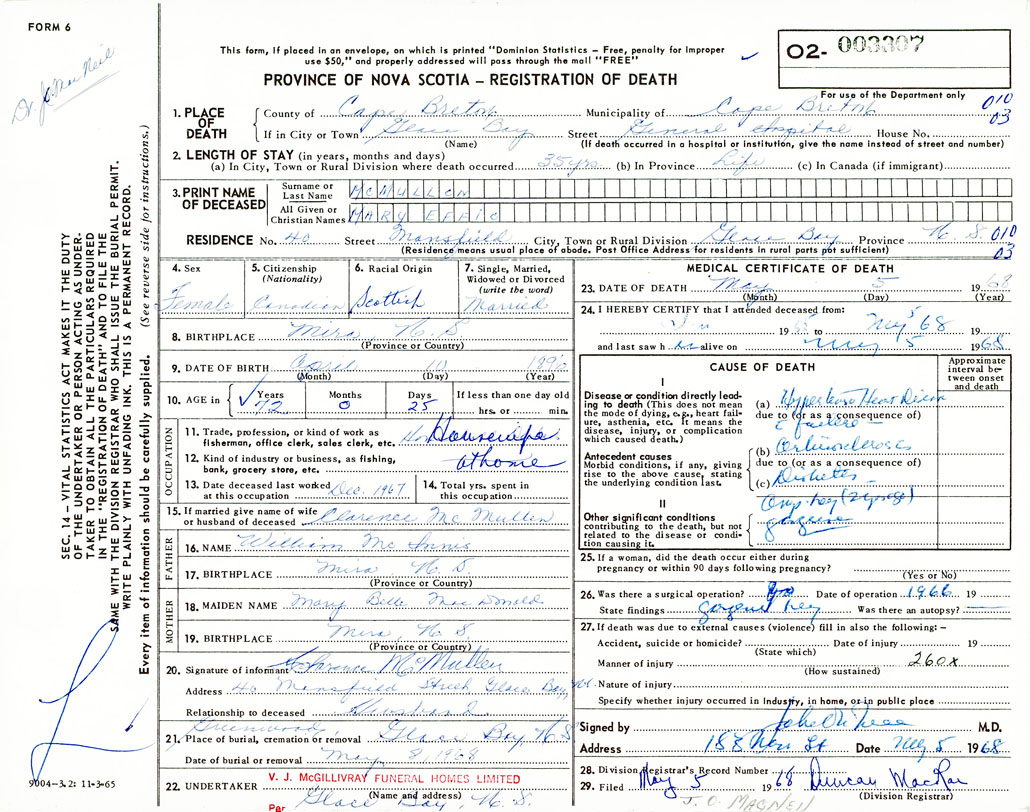 FORM 6
Dr J. MacNeil
This form, if placed in an envelope, on which is printed "Dominion Statistics – Free, penalty for improper
use $50," and properly addressed will pass through the mail "FREE"
PROVINCE OF NOVA SCOTIA – REGISTRATION OF DEATH
O2- 003307
For use of the Department only
010
03
1. PLACE OF DEATH
County of Cape Breton Municipality of Cape Breton
If in City or Town Glace Bay Street General Hospital House No.
(Name) (If death occurred in a hospital or institution, give the name instead of street and number)
2. LENGTH OF STAY (in years, months and days)
(a) In City, Town or Rural Division where death occurred 35 yrs (b) In Province Life (c) In Canada (if immigrant)
3. PRINT NAME OF DECEASED
Surname or Last Name McMULLEN
All Given or Christian Names MARY EFFIE
RESIDENCE No. 40 Street Mansfield City, Town or Rural Division Glace Bay Province N. S. 010
03
(Residence means usual place of abode. Post Office Address for residents in rural parts not sufficient)
4. Sex
Female
5. Citizenship (Nationality)
Canadian
6. Racial Origin
Scottish
7. Single, Married, Widowed or Divorced (write the word)
Married
8. BIRTHPLACE Mira N. S.
(Province or Country)
9. DATE OF BIRTH April 10
(Month) (Day) (Year)
10. AGE in Years 72 Months 0 Days 25 If less than one day old
hrs. or min.
OCCUPATION
11. Trade, profession, or kind of work as fisherman, office clerk, sales clerk, etc. Housewife
12. Kind of industry or business, as fishing, bank, grocery store, etc. at home
13. Date deceased last worked at this occupation Dec. 1967
14. Total yrs. spent in this occupation
15. If married give name of wife or husband of deceased Clarence McMullen
FATHER
16. NAME William McInnis
17. BIRTHPLACE Mira, N. S.
(Province or Country)
MOTHER
18. MAIDEN NAME Mary Belle MacDonald
19. BIRTHPLACE Mira, N. S.
(Province or Country)
20. Signature of informant Clarence McMullen
Address 40 Mansfield Street Glace Bay, N.S.
Relationship to deceased Husband
21. Place of burial, cremation or removal Greenwood Glace Bay, N S
Date of burial or removal May 8, 1968
22. UNDERTAKER V. J. McGILLIVRAY FUNERAL HOMES LIMITED
(Name and address)
Per Glace Bay, N. S.
MEDICAL CERTIFICATE OF DEATH
23. DATE OF DEATH May 5 1968
(Month) (Day) (Year)
24. I HEREBY CERTIFY that I attended deceased from:
19 to May 5 68
and last saw h alive on May 5 1968
CAUSE OF DEATH
Approximate interval between onset and death
I
Disease or condition directly leading to death (This does not mean the mode of dying, e.g., heart failure, asthenia, etc. It means the disease, injury, or complication which caused death.)
(a) Hypertensive Heart Disease
due to (or as a consequence of)
c failure
Antecedent causes
Morbid conditions, if any, giving rise to the above cause, stating the underlying condition last.
(b) Arteriosclerosis
due to (or as a consequence of)
(c) Diabetes
II
Other significant conditions contributing to the death, but not related to the disease or condition causing it.
gangrene
25. If a woman, did the death occur either during pregnancy or within 90 days following pregnancy?
(Yes or No)
26. Was there a surgical operation? Yes Date of operation 1966 19
State findings gangrene leg Was there an autopsy?
27. If death was due to external causes (violence) fill in also the following: –
Accident, suicide or homicide? Date of injury 19
(State which)
Manner of injury 260X
(How sustained)
Nature of injury
Specify whether injury occurred in Industry, in home, or in public place
Signed by John MacNeil M.D.
Address Date May 5 1968
28. Division Registrar's Record Number
29. Filed May 5 1968 Duncan MacRae
(Division Registrar)
J. O. MACNEIL
SEC. 14 – VITAL STATISTICS ACT MAKES IT THE DUTY
OF THE UNDERTAKER OR PERSON ACTING AS UNDER-
TAKER TO OBTAIN ALL THE PARTICULARS REQUIRED
IN THE "REGISTRATION OF DEATH" AND TO FILE THE
SAME WITH THE DIVISION REGISTRAR WHO SHALL ISSUE THE BURIAL PERMIT.
WRITE PLAINLY WITH UNFADING INK. THIS IS A PERMANENT RECORD.
Every item of information should be carefully supplied. (See reverse side for instructions.)
9004-3.2: 11-3-65